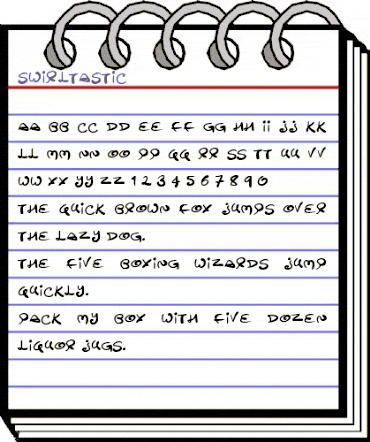 SWIRLTASTIC
AA BB CC DD EE FF GG HH ii jj KK
LL MM NN OO PP QQ RR SS TT UU VV
WW XX YY ZZ 1 2 3 4 5 6 7 8 9 0
THE QUICK BROWN FOX JUMPS OVER
THE LAZY DOG.
THE FIVE BOXING WIZARDS JUMP
QUICKLY.
PACK MY BOX WITH FIVE DOZEN
LIQUOR JUGS.